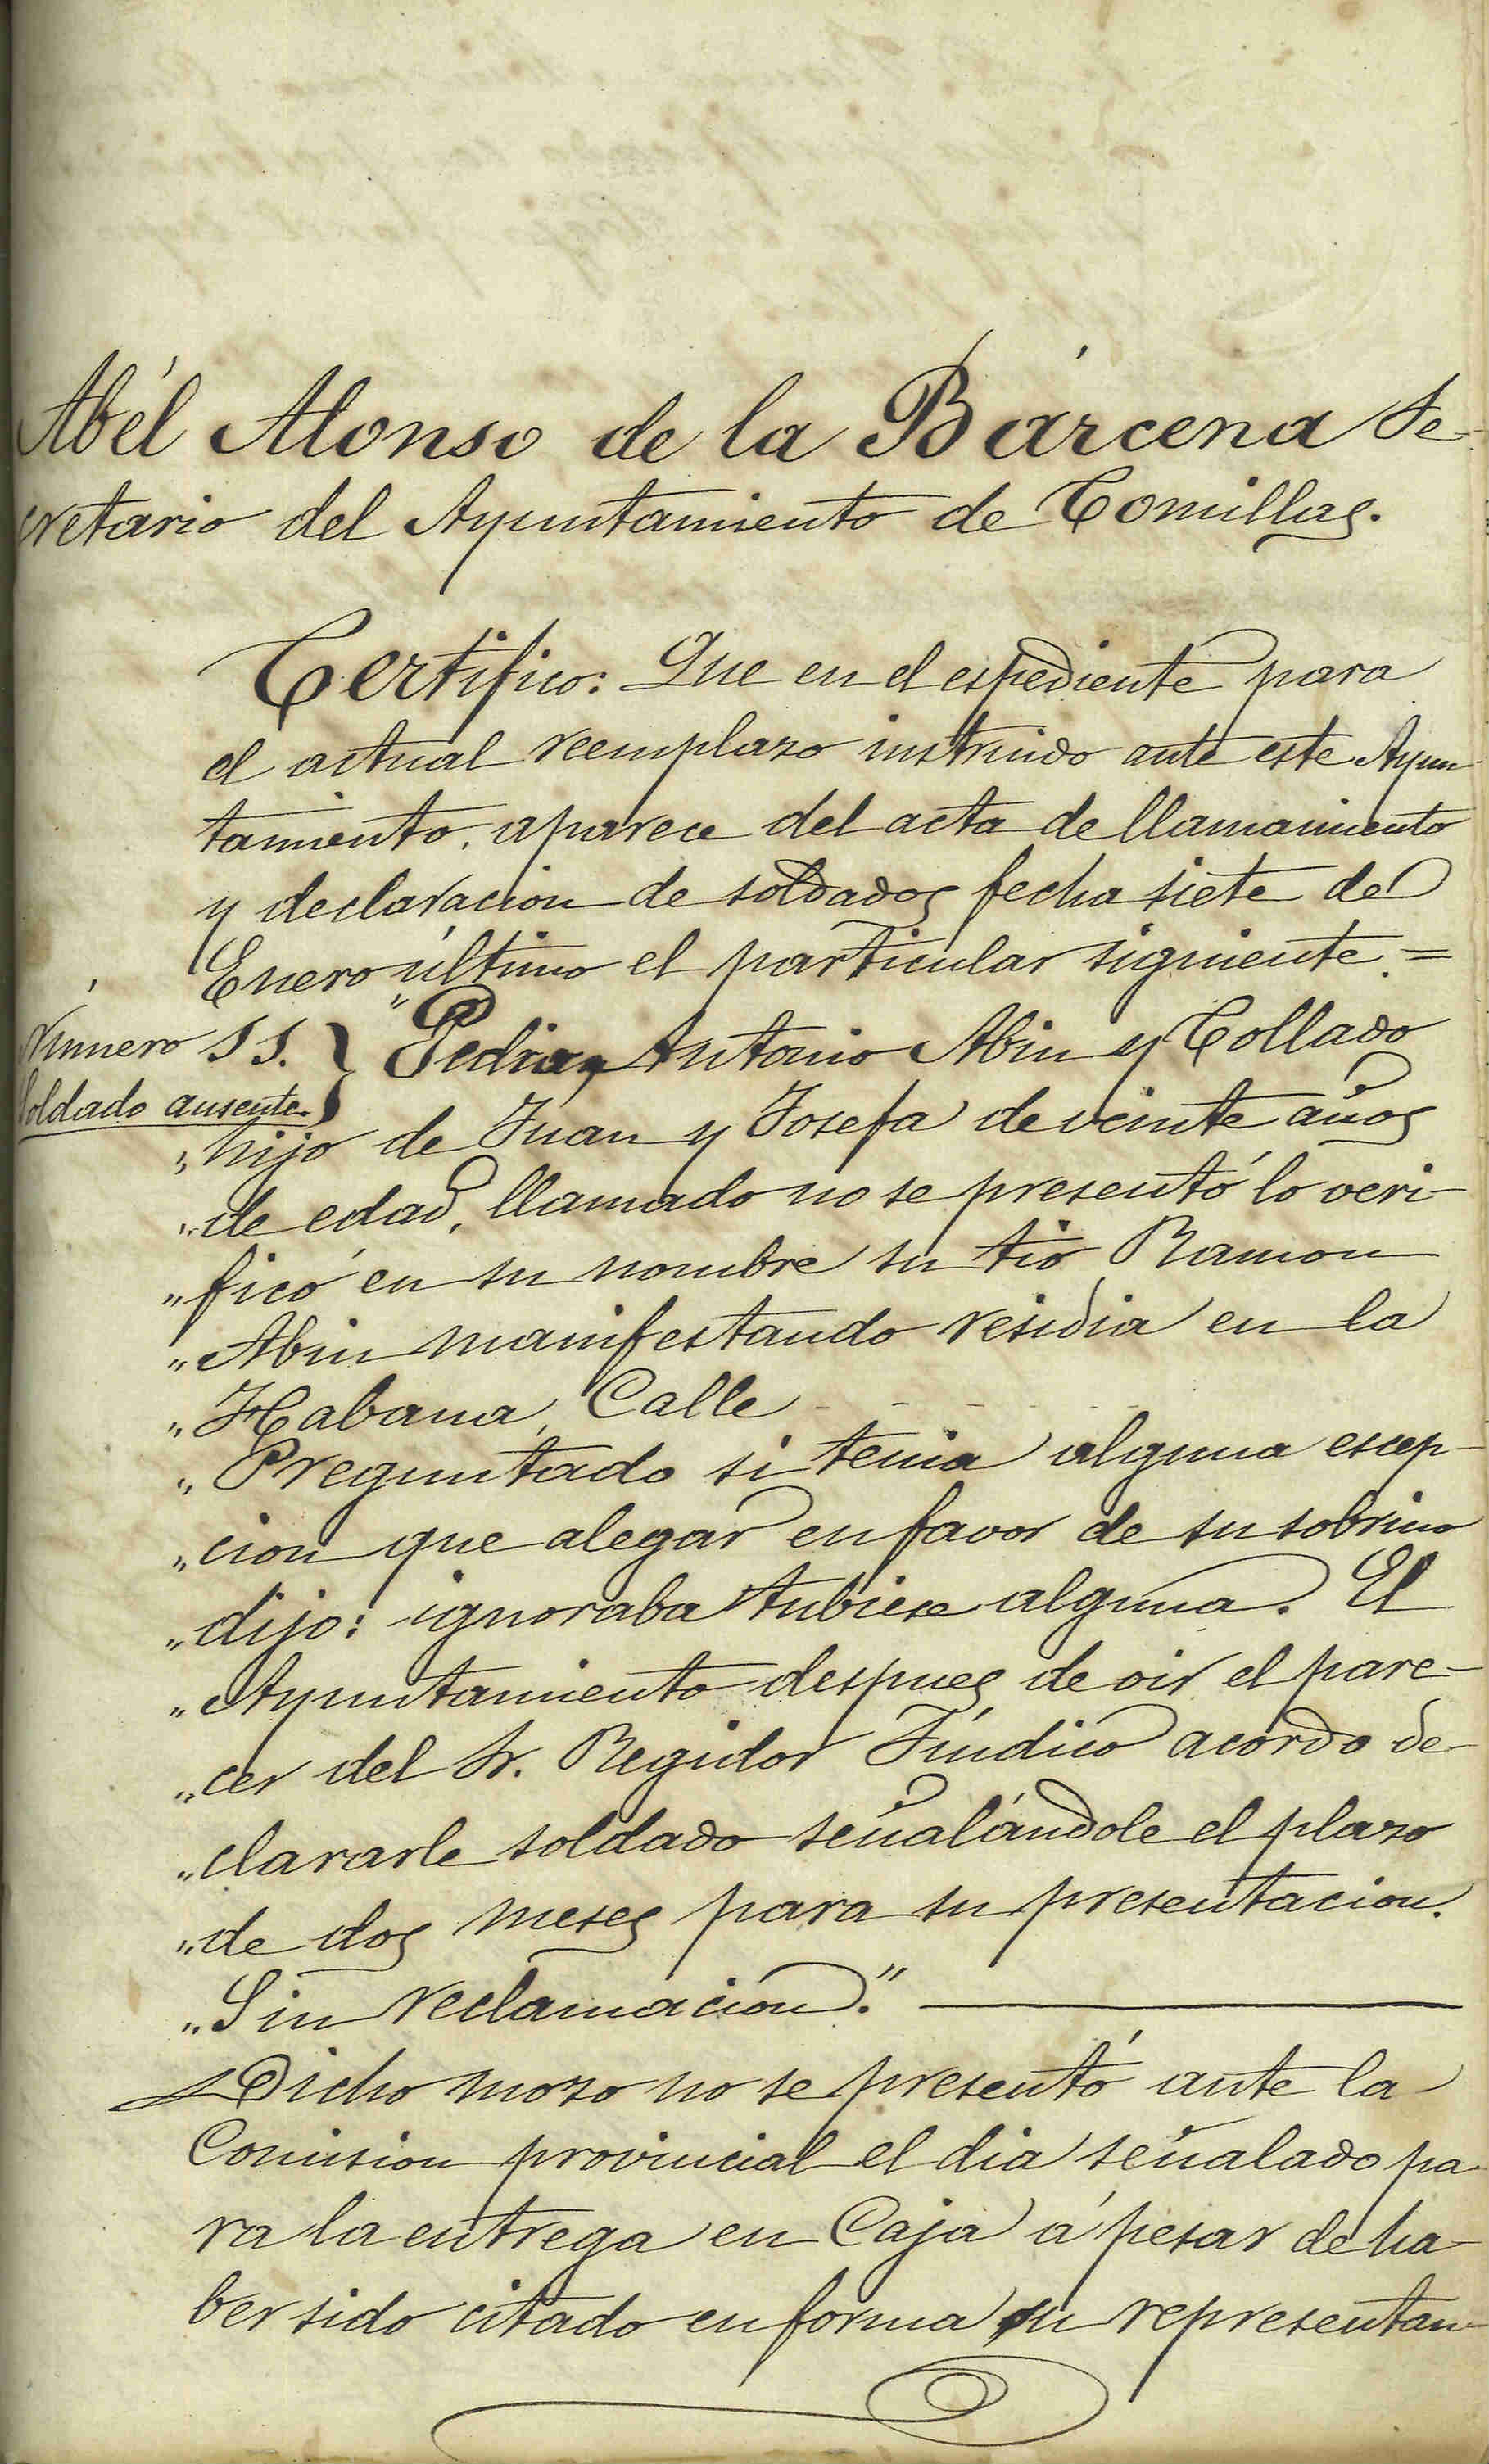 Abél Alonso de la Bárcena Se-
cretario del Ayuntamiento de Comillas.
Certifico: Que en el espediente para
el actual reemplazo instruido ante este Ayun-
tamiento, aparece del acta de llamamiento
y declaracion de soldados fecha siete de
Enero último el particular siguiente. =
Número 11. } "Pedro, Antonio Abin y Collado
Soldado ausente.
"hijo de Juan y Josefa de veinte años
"de edad, llamado no se presentó lo veri-
"ficó en su nombre su tio Ramon
"Abin manifestando residia en la
"Habana, Calle - - - - - -
"Preguntado si tenia alguna escep-
"cion que alegar en favor de su sobrino
"dijo: ignoraba tubiese alguna. El
"Ayuntamiento despues de oir el pare-
"cer del Sr. Regidor Síndico acordo de-
"clararle soldado señalándole el plazo
"de dos meses para su presentacion.
"Sin reclamacion."
Dicho mozo no se presentó ante la
Comision provincial el dia señalado pa-
ra la entrega en Caja á pesar de ha-
ber sido citado en forma su representan-